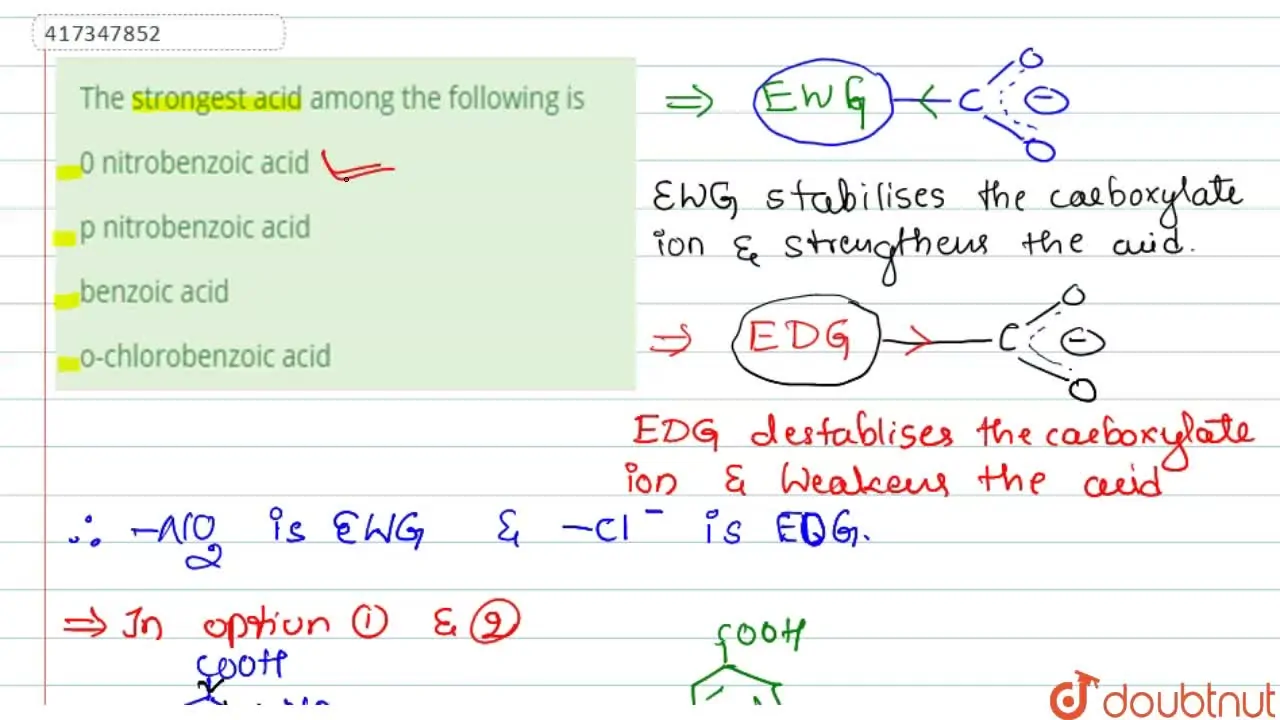 417347852
The strongest acid among the following is
0 nitrobenzoic acid
p nitrobenzoic acid
benzoic acid
o-chlorobenzoic acid
⇒ EWG C O ⊖ O
EWG stabilises the carboxylate
ion & strengthens the acid.
⇒ EDG C O ⊖ O
EDG destablises the carboxylate
ion & Weakens the acid
∴ -NO2 is EWG & -Cl⁻ is EDG.
⇒ In option ① & ②
COOH
COOH
doubtnut